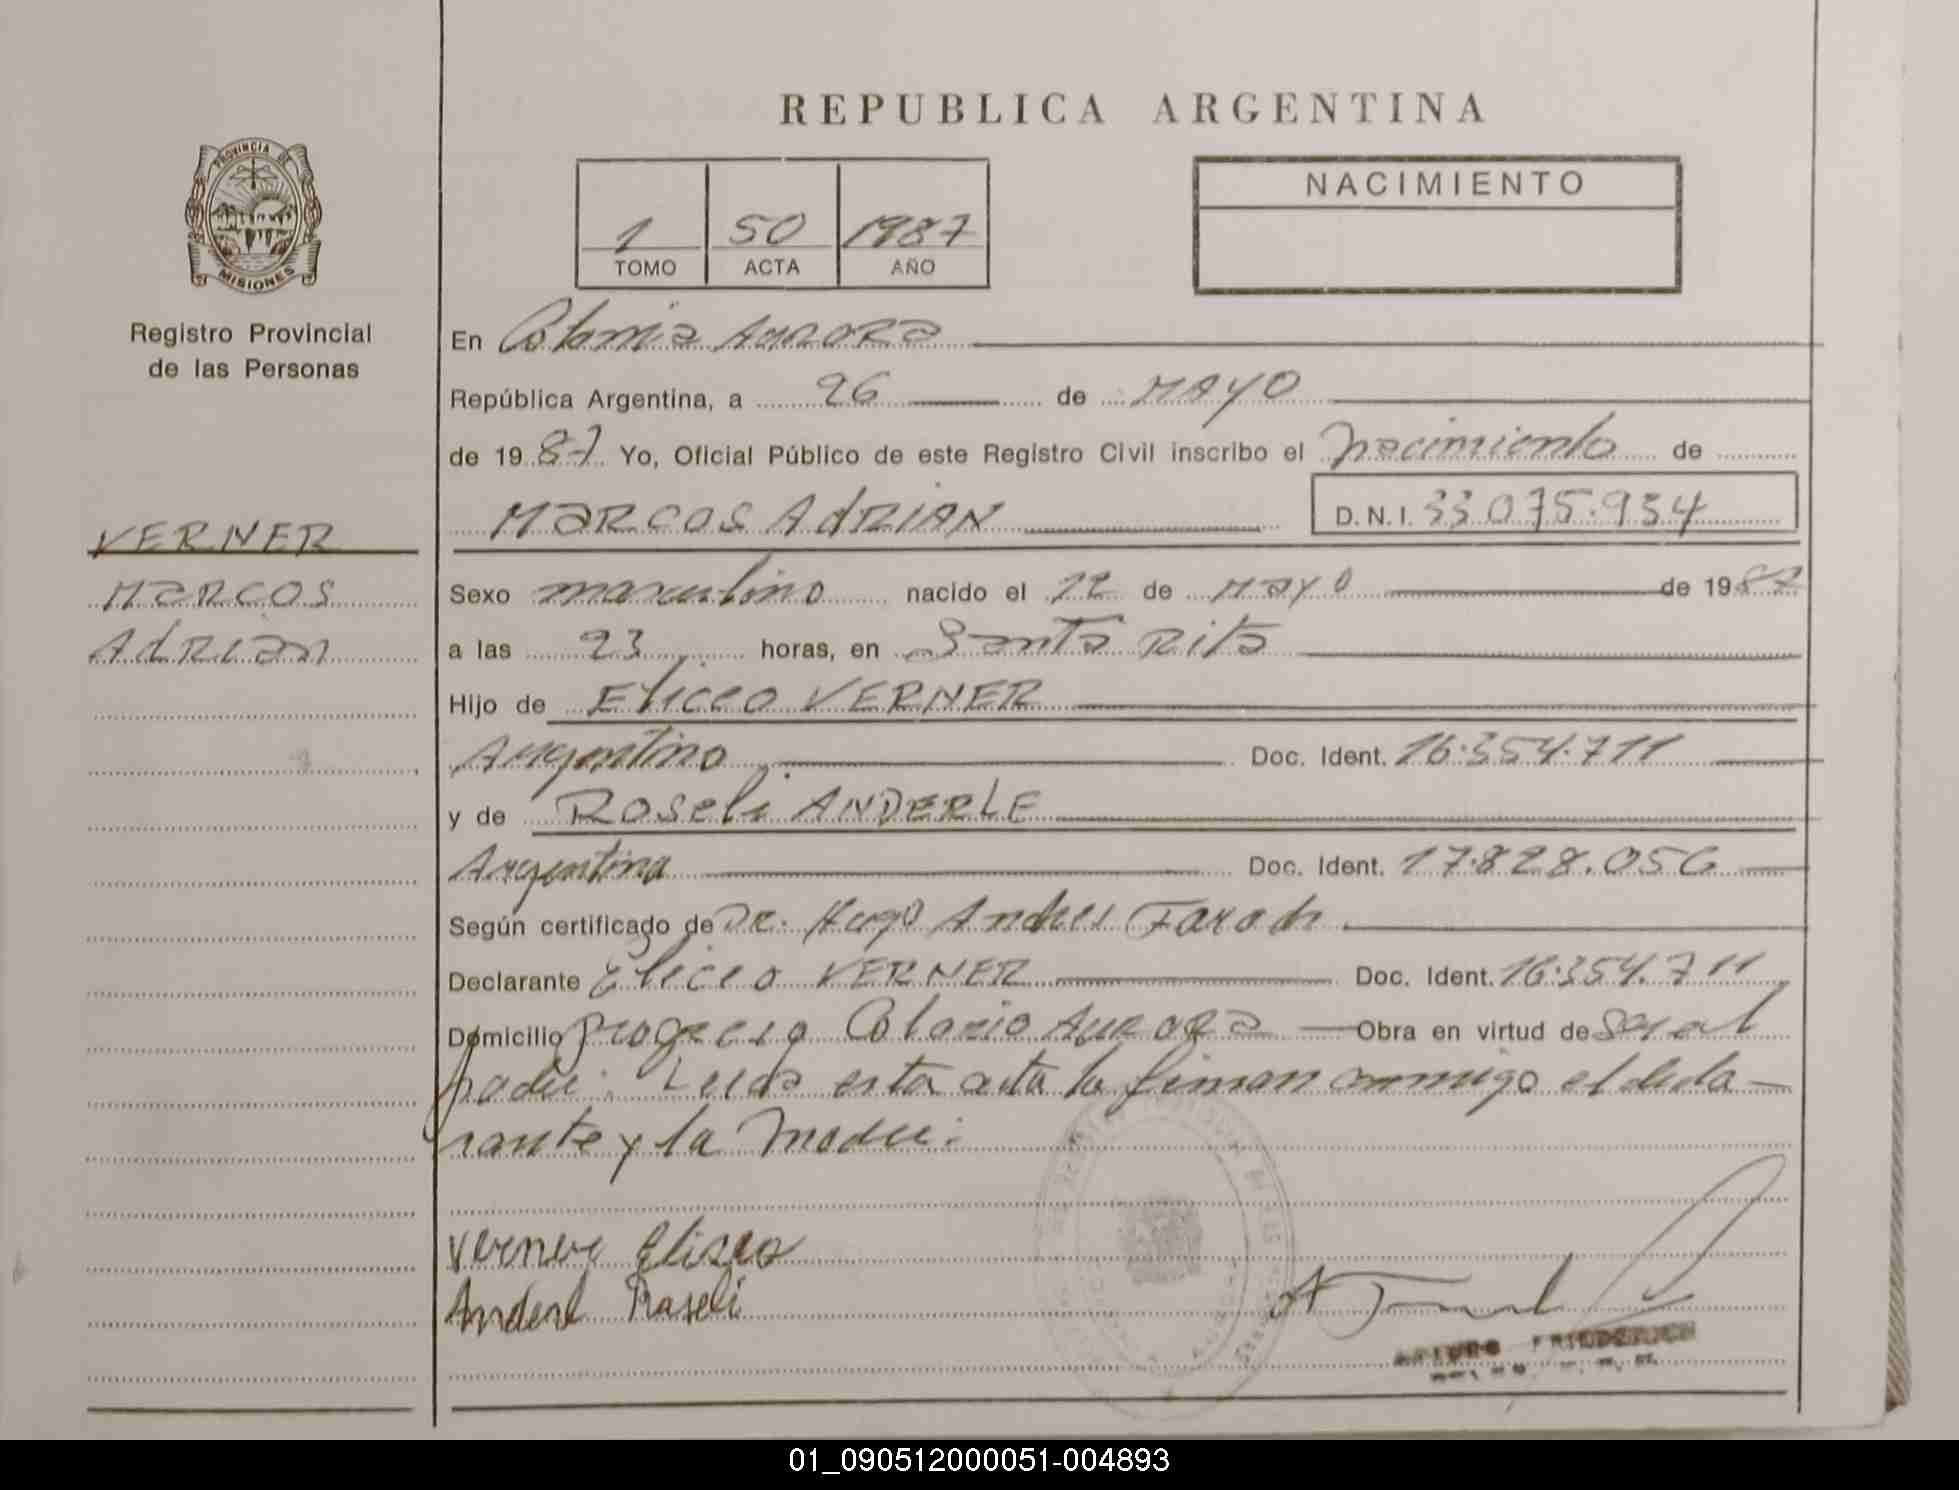 REPUBLICA ARGENTINA
PROVINCIA DE
MISIONES
Registro Provincial
de las Personas
1 50 1987
TOMO ACTA AÑO
NACIMIENTO
En Colonia Aurora
República Argentina, a 26 de MAYO
de 1987 Yo, Oficial Público de este Registro Civil inscribo el Nacimiento de
MARCOS AdRIAN D.N.I. 33.075.934
VERNER
MARCOS
AdRIAN
Sexo masculino nacido el 12 de Mayo de 1987
a las 23 horas, en Santa Rita
Hijo de Eliceo VERNER
Argentino Doc. Ident. 16.354.711
y de Roseli ANDERLE
Argentina Doc. Ident. 17.828.056
Según certificado de Dr. Hugo Andres
Declarante Eliceo VERNER Doc. Ident. 16.354.711
Domicilio Progreso Colonia Aurora Obra en virtud de ser el
padre. Leida esta acta la firman conmigo el decla-
rante y la Madre.
Verner Eliseo
Anderl Roseli
ARTURO FRIEDERICH
01_090512000051-004893